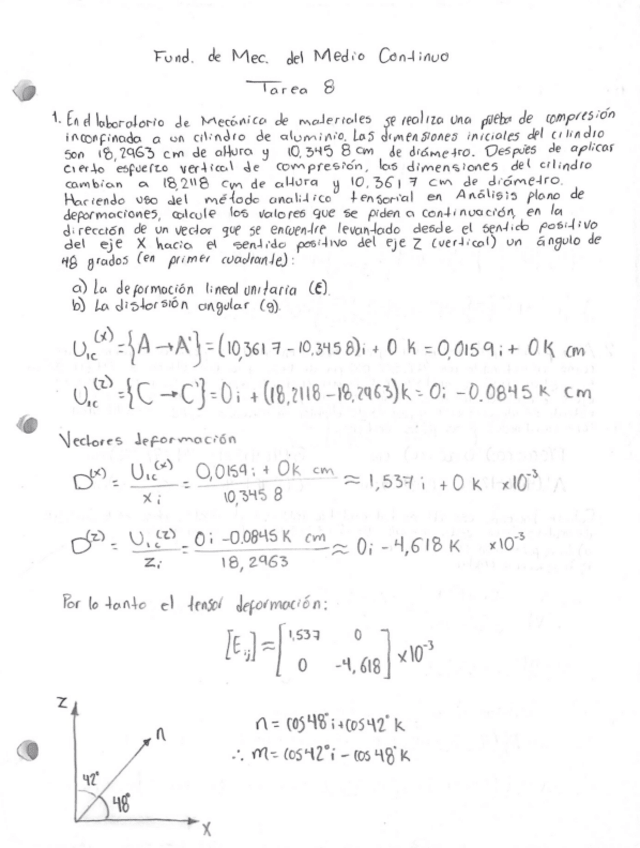 Fund. de Mec. del Medio Continuo
Tarea 8
1. En el laboratorio de Mecánica de materiales se realiza una prueba de compresión
inconfinada a un cilindro de aluminio. Las dimensiones iniciales del cilindro
son 18,2963 cm de altura y 10,3458 cm de diámetro. Después de aplicar
cierto esfuerzo vertical de compresión, las dimensiones del cilindro
cambian a 18,2118 cm de altura y 10,3617 cm de diómetro.
Haciendo uso del método analítico tensorial en Análisis plano de
deformaciones, calcule los valores que se piden a continuación, en la
dirección de un vector que se encuentre levantado desde el sentido positivo
del eje X hacia el sentido positivo del eje Z (vertical) un ángulo de
48 grados (en primer cuadrante):
a) La deformación lineal unitaria (E).
b) La distorsión angular (g).
U₁c⁽ˣ⁾ = {A → A'} = (10,3617 - 10,3458)i + 0 k = 0,0159 i + 0K cm
U₁c⁽ᶻ⁾ = {C → C'} = 0i + (18,2118 - 18,2963)k = 0i - 0.0845 K cm
Vectores deformación
D⁽ˣ⁾ = U₁c⁽ˣ⁾ / xi = 0,0159 i + 0k cm / 10,3458 ≈ 1,537 i + 0 k x10⁻³
D⁽ᶻ⁾ = U₁c⁽ᶻ⁾ / Zi = 0i - 0.0845 K cm / 18,2963 ≈ 0i - 4,618 K x10⁻³
Por lo tanto el tensor deformación:
[Eij] = [1,537 0
0 -4,618] x10⁻³
Z
n
42°
48°
X
n = cos48°i + cos42°k
∴ m = cos42°i - cos48°K